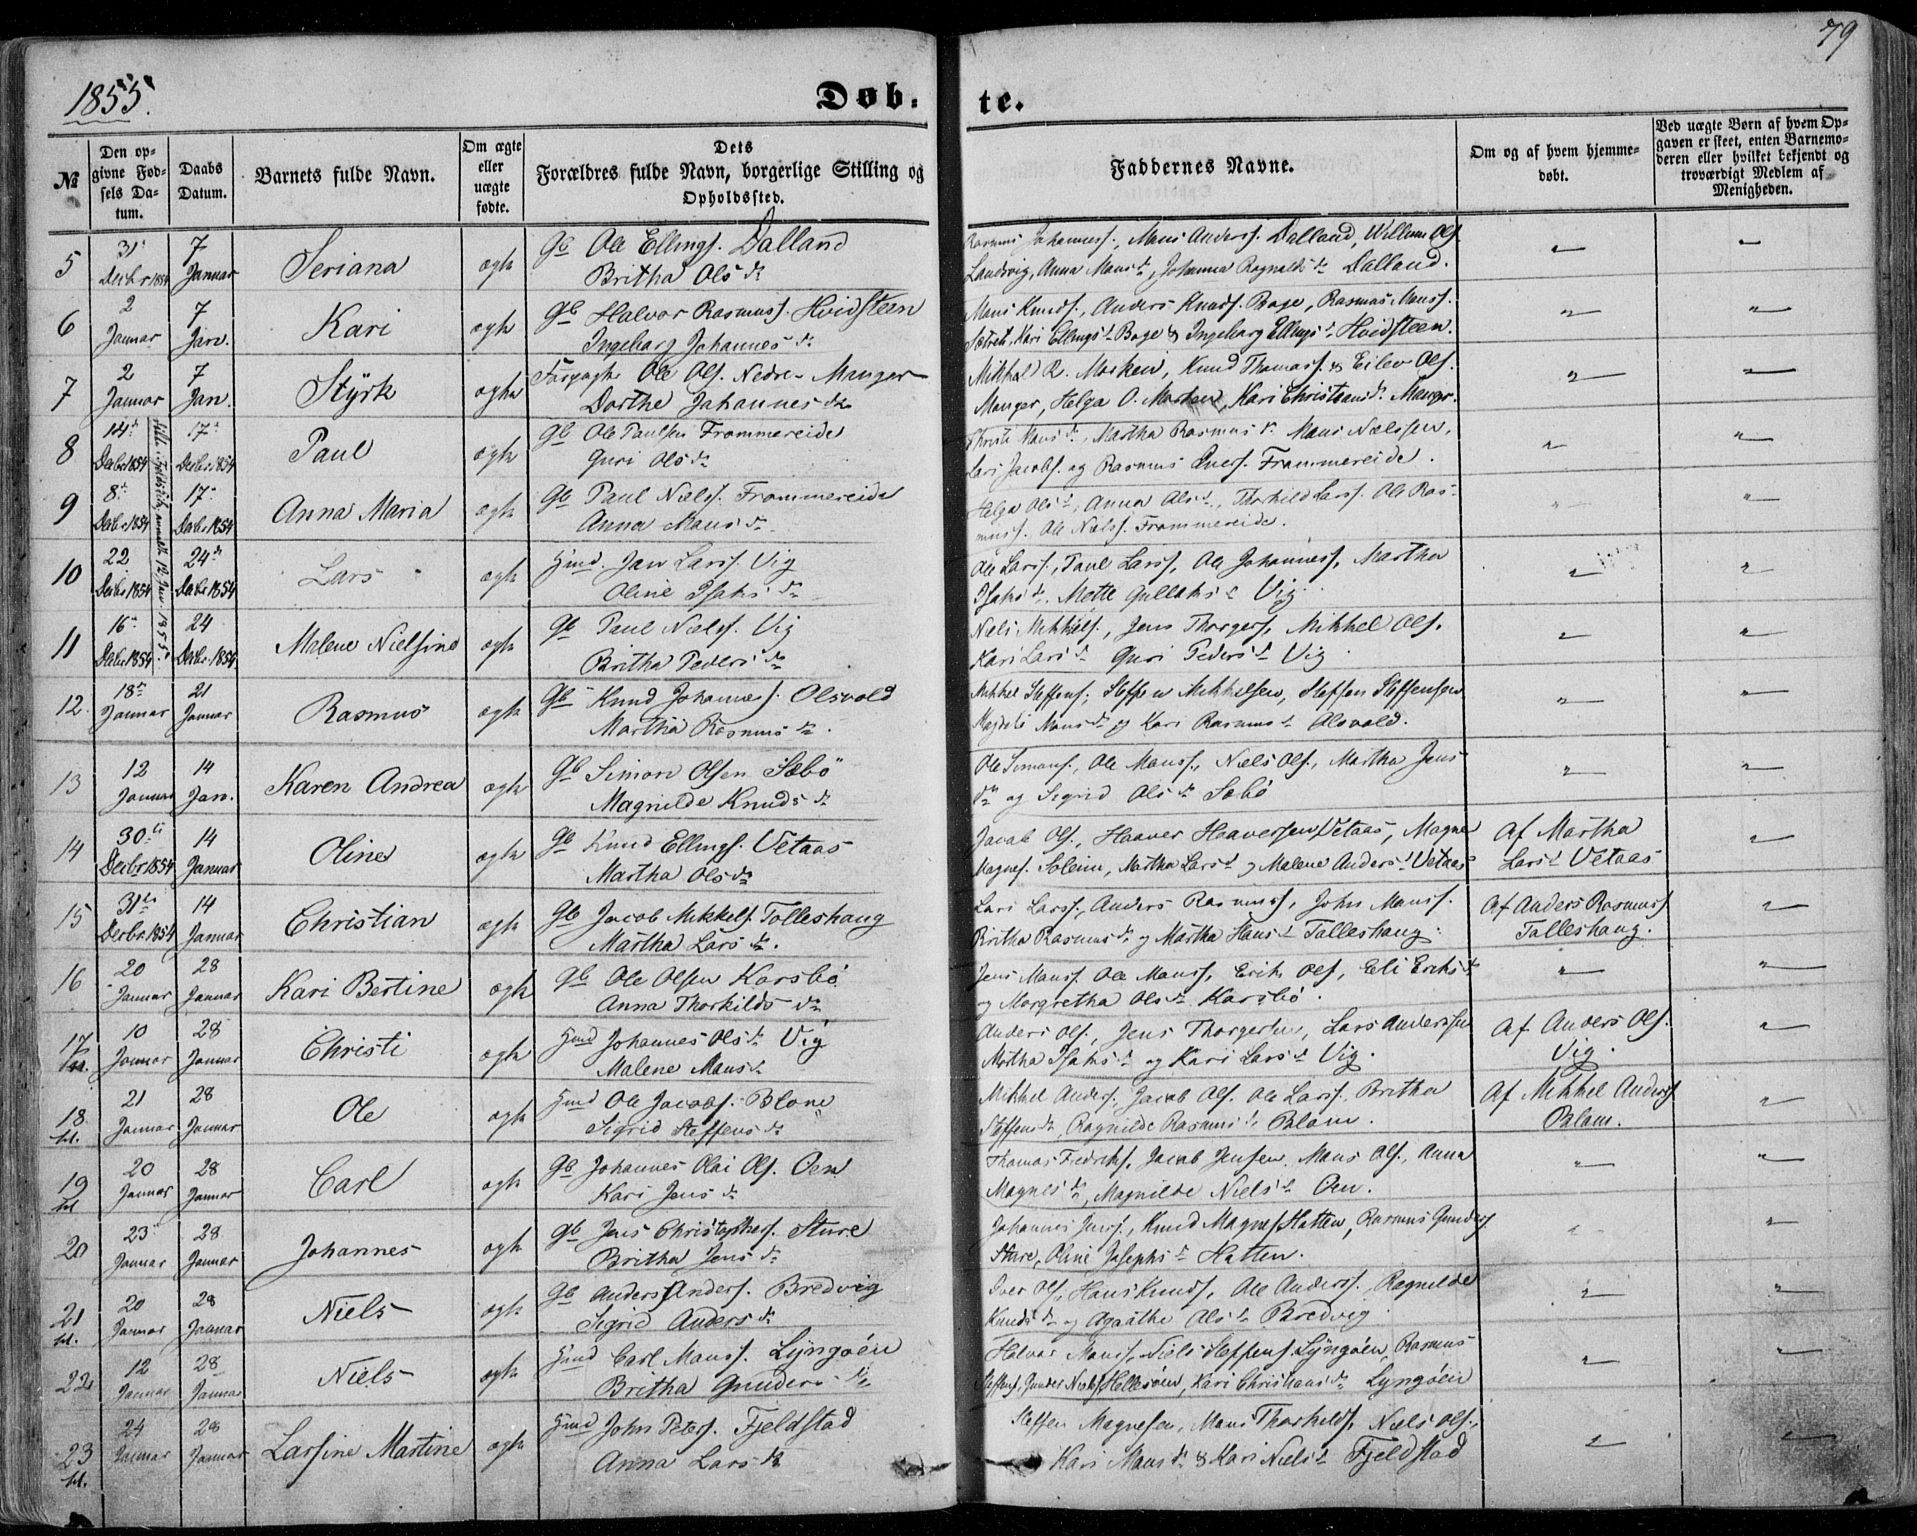 79
1855.
Døb-te.
№
Den op-
givne Fød-
sels Da-
tum.
Daabs
Datum.
Barnets fulde Navn.
Om ægte
eller
uægte
fødte.
Dets
Forældres fulde Navn, borgerlige Stilling og
Opholdssted.
Faddernes Navne.
Om og af hvem hjemme-
døbt.
Ved uægte Børn af hvem Op-
gaven er skeet, enten Barnemo-
deren eller hvilket bekjendt og
troværdigt Medlem af
Menigheden.
5 31 Decbr 1854 7 Januar Seriana ægte Gb Ole Ellings. Dalland
Britha Ols dr
Rasmus Johanness., Mans Anders. Dalland, Willum Ols.
Landsvig, Anna Mans dr, Johanna Ragnalds dr Dalland.
6 2 Januar 7 Jan. Kari ægte Gb Halvor Rasmuss. Hvidsteen
Ingeborg Johannes dr
Mans Knuds., Anders Knuds. Boge, Rasmus Manss.
Kari Ellings d Boge & Ingeborg Ellings d Hvidsteen.
7 2 Januar 7 Jan. Styrk ægte Ole Ols. Nedre-Manger
Dorthe Johannes dr
Mikkel R. Marken, Knud Thomass. & Eilev Ols.
Manger, Helga O. Marken, Kari Christians d. Manger.
8 14 Decbr 1854 17 Decbr 1854 Paul ægte Gb Ole Paulsen Frommereide
Guri Ols dr
Christi Mans dr, Martha Rasmus dr Mans Nielssen,
Lars Jacobs. og Rasmus Frommereide.
9 8 Decbr 1854 17 Decbr 1854 Anna Maria ægte Gb Paul Niels. Frommereide
Anna Mans dr
Helga Ols d, Anna Ols d, Thorkild Lars. Ole Ras-
muss. Ole Niels. Frommereide.
10 22 Decbr 1854 24 Decbr 1854 Lars ægte Huusmd. Jan Larss. Vig
Oline Isaks dr
Ole Larss., Paul Larss, Ole Johanness, Martha
Isaks dr, Mette Gullaks d Vig.
11 16 Decbr 1854 24 Decbr 1854 Malene Nielsine ægte Gb Paul Niels. Vig
Britha Peders dr
Niels Mikkels., Jens Thorgers, Mikkel Ols.
Kari Lars dr Guri Peders d Vig.
12. 18 Januar 21 Januar Rasmus ægte Gb Knud Johanness. Olsvold
Martha Rasmus dr.
Mikkel Steffens, Steffen Mikkelsen, Steffen Steffensen
Mans dr og Kari Rasmus d Olsvold.
13 12 Januar 14 Jan. Karen Andrea ægte Gb Simon Olsen Sæbö
Magnilde Knuds dr
Ole Simons., Ole Manss., Niels Ols., Martha Jens
dr og Sigrid Ols dr Sæbö
14 30 Decbr 1854 14 Januar Oline ægte Gb Knud Ellings. Vetaas
Martha Ols dr
Jacob Ols., Haaver Haaversen Vetaas, Magne
Magnes. Soleim, Martha Lars d og Malene Anders d Vetaas
Af Martha
Lars d Vetaas
15 31 Decbr 1854 14 Januar Christian ægte Gb Jacob Mikkels. Tolleshaug
Martha Lars dr.
Lars Larss., Anders Rasmuss, John Manss.
Britha Rasmus dr og Martha Hans d Tolleshaug.
Af Anders Rasmuss
Tolleshaug.
16 20 Januar 28 Januar Kari Bertine ægte Gb Ole Olsen Karsbö
Anna Thorkilds dr
Jens Manss. Ole Manss, Erik Ols, Eli Eriks d
og Margretha Ols dr Karsbö.
17 10 Januar 28 Januar Christi ægte Huusmd Johannes Ols Vig
Malene Mans d
Anders Ols, Jens Thorgersen, Lars Anderssen
Martha Isaks d og Kari Lars d Vig.
Af Anders Ols.
Vig.
18 21 Januar 28 Januar Ole ægte Huusmd Ole Jacobs. Blom
Sigrid Steffens dr
Mikkel Anders. Jacob Ols. Ole Larss. Britha
Steffens dr, Ragnilde Rasmus d Blom.
Af Mikkel Anders.
Blom.
19 20 Januar 28 Januar Carl ægte Gb Johannes Olai Ols. Oen
Kari Jens dr
Thomas Fredriks, Jacob Jensen, Mans Ols., Anna
Magnes dr, Magnilde Niels d Oen.
20 23 Januar 28 Januar Johannes ægte Gb Jens Christophers. Sture
Britha Jens dr
Johannes Jenss., Knud Magnes. Hatten, Rasmus Gunders
Sture, Oline Josephs d Hatten.
21 20 Januar 28 Januar Niels ægte Gb Anders Anders. Bredvig
Sigrid Anders dr
Iver Ols, Hans Knuds, Ole Anders., Ragnilde
Knuds dr og Agaathe Ols d Bredvig
22 12 Januar 28 Januar Niels ægte Huusmd Carl Manss. Lyngöen
Britha Gunders dr
Halvor Manss, Niels Steffens Lyngöen, Rasmus
Steffens, Gunder Niels. Hellesöen, Kari Christians dr Lyngöen
23 24 Januar 28 Januar Larsine Martine ægte Huusmd John Peters. Fjeldstad
Anna Lars dr
Steffen Magnesen, Mans Thorkilds, Niels Ols.,
Kari Mans dr & Kari Niels d Fjeldstad